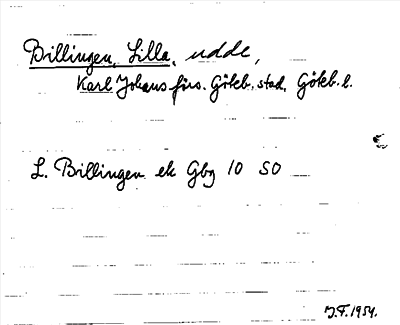 Billingen, Lilla, udde,
Karl Johans förs. Göteb. stad, Göteb. l.
L. Billingen ek Gbg 10 SO
J.F. 1954.